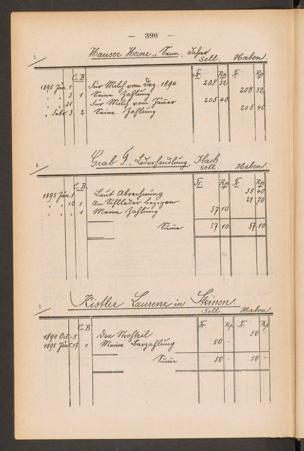 — 390 —
Hauser Heinr., Senn, Jahre
Soll. Haben.
C.B. Fr. Rp. Fr. Rp.
1895 Jan. 1 Für Milch vom Dez. 1894 208 32
" " 3 1 Seine Zahlung 208 32
" " 31 Für Milch vom Jänner 205 40
" Febr. 3 2 Seine Zahlung 205 40
Grab F., Lederhandlung,
Soll. Haben.
C.B. Fr. Rp. Fr. Rp.
1895 Jan. Laut Abrechnung 35 40
" " 12 1 An Sohlleder bezogen 21 70
" " 1 Meine Zahlung 57 10
Summe 57 10 57 10
Kistler Laurenz in Steinen.
Soll Haben.
C.B. Fr. Rp. Fr. Rp.
1890 Okt. 5 50 -
1895 Jan. 17 1 Meine Barzahlung 50 -
Summe 50 - 50 -